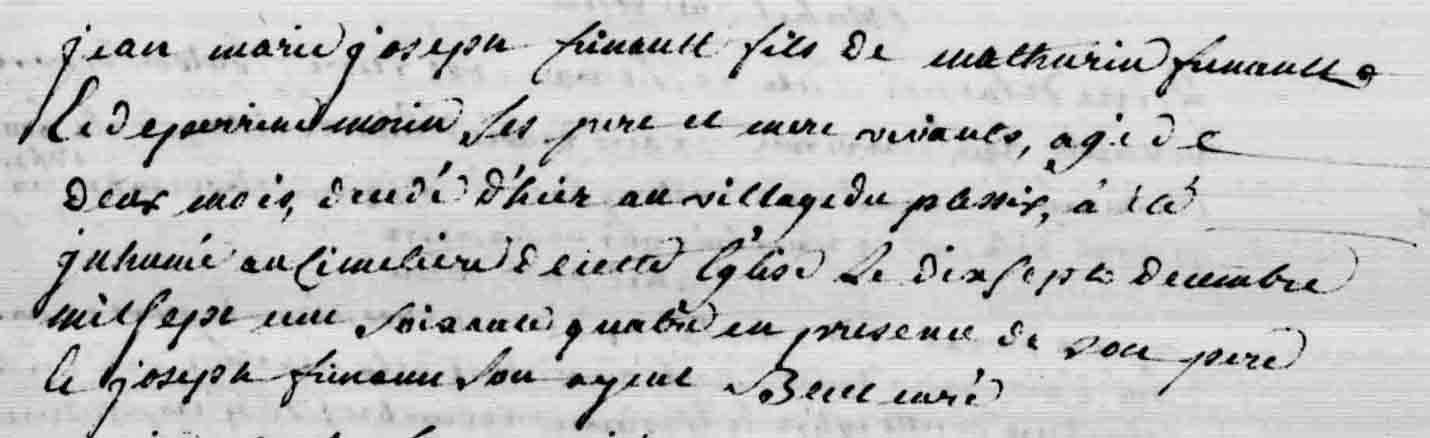 jean marie joseph funault fils de mathurin funault
et de perrine morin ses pere et mere vivants, agé de
deux mois, decedé d'hier au village du plessix, a eté
jnhumé au cimetiere de cette Eglise le dix sept decembre
mil sept cent soixante quatre en presence de son pere
et joseph funault son ayeul curé